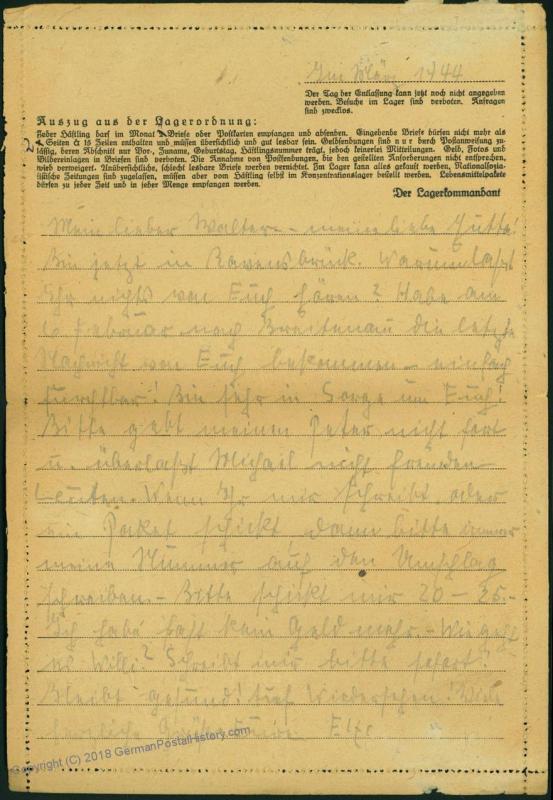 Im März 1944
Der Tag der Entlassung kann jetzt noch nicht angegeben
werden. Besuche im Lager sind verboten. Anfragen
sind zwecklos.
Auszug aus der Lagerordnung:
Jeder Häftling darf im Monat 2 Briefe oder Postkarten empfangen und absenden. Eingehende Briefe dürfen nicht mehr als
2 Seiten à 15 Zeilen enthalten und müssen übersichtlich und gut lesbar sein. Geldsendungen sind nur durch Postanweisung zu-
lässig, deren Abschnitt nur Vor-, Zuname, Geburtstag, Häftlingsnummer trägt, jedoch keinerlei Mitteilungen. Geld, Fotos und
Bildereinlagen in Briefen sind verboten. Die Annahme von Postsendungen, die den gestellten Anforderungen nicht entsprechen,
wird verweigert. Unübersichtliche, schlecht lesbare Briefe werden vernichtet. Im Lager kann alles gekauft werden. Nationalsozia-
listische Zeitungen sind zugelassen, müssen aber vom Häftling selbst im Konzentrationslager bestellt werden. Lebensmittelpakete
dürfen zu jeder Zeit und in jeder Menge empfangen werden.
Der Lagerkommandant
Mein lieber Walter - meine liebe Jutta!
Bin jetzt in Ravensbrück. Warum laßt
Ihr nichts von Euch hören? Habe am
6 Februar noch Breitenau die letzte
Nachricht von Euch bekommen - einfach
furchtbar! Bin sehr in Sorge um Euch!
Bitte gebt meinen Peter nicht fort
u. überlaßt Michael nicht fremden
Leuten. Wenn Ihr mir schreibt oder
ein Paket schickt, dann bitte immer
meine Nummer auf den Umschlag
schreiben. - Bitte schickt mir 20 - 25.-
Ich habe fast kein Geld mehr. - Wie geht
es Willi? Schreibt mir bitte sofort!
Bleibt gesund! Auf Wiedersehen! Viele
herzliche Grüße Eure
Copyright (C) 2018 GermanPostalHistory.com